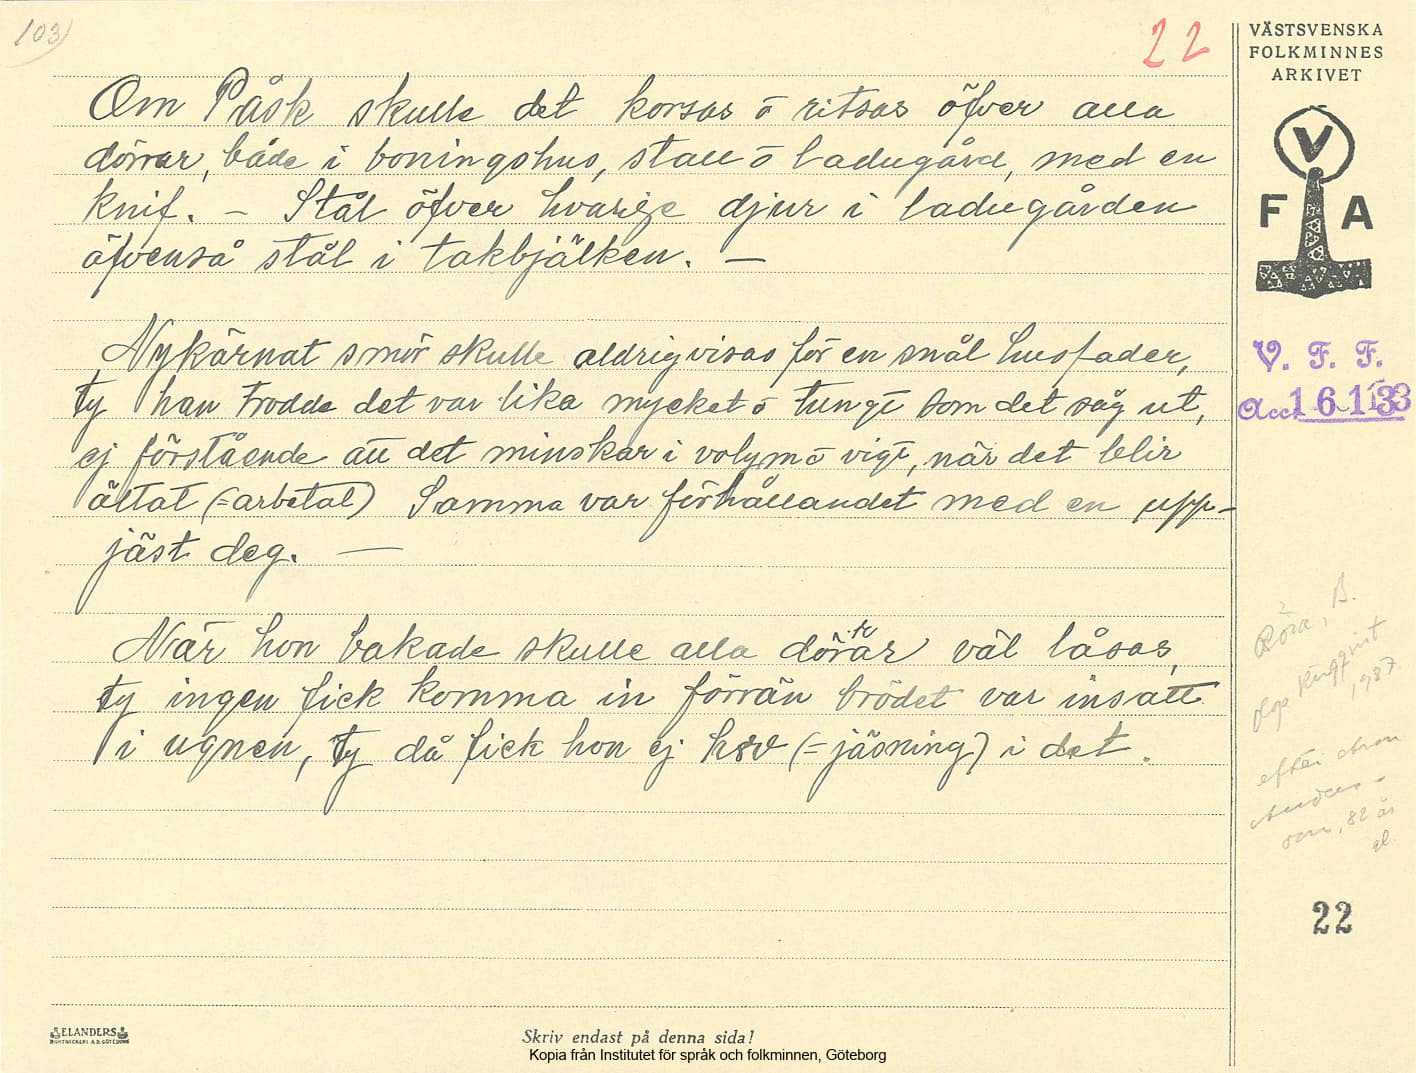 103)
22
VÄSTSVENSKA
FOLKMINNES
ARKIVET
Om Påsk skulle det korsas ō ritsas öfver alla
dörrar, både i boningshus, stall ō ladugård, med en
knif. – Stål öfver hvarige djur i ladugården
äfvenså stål i takbjälken. —
V
F A
Nykärnat smör skulle aldrig visas för en snål husfader,
ty han trodde det var lika mycket ō tungt som det såg ut,
ej förstående att det minskar i volym ō vigt, när det blir
ältat (= arbetat) Samma var förhållandet med en upp-
jäst deg. —
V. F. F.
Acc. 1613
När hon bakade skulle alla dörrar väl låsas,
ty ingen fick komma in förrän brödet var insatt
i ugnen, ty då fick hon ej häv (= jäsning) i det.
Röra, B.
1937
efter
son, 82 år
22
ELANDERS
BOKTRYCKERI A.B. GÖTEBORG
Skriv endast på denna sida!
Kopia från Institutet för språk och folkminnen, Göteborg